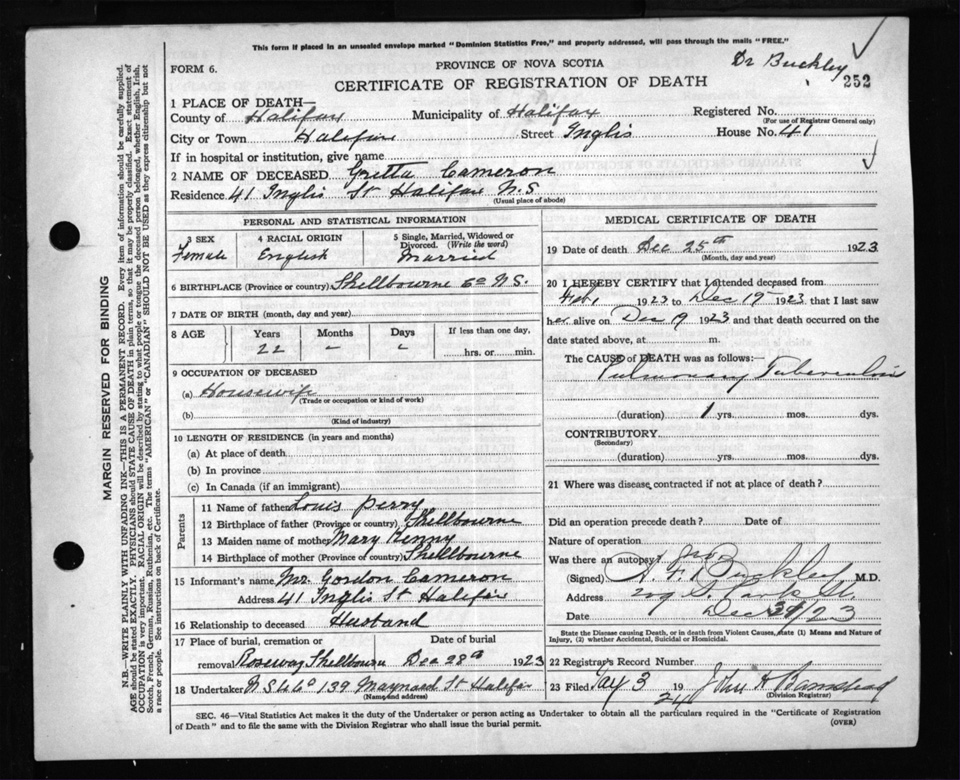 This form if placed in an unsealed envelope marked "Dominion Statistics Free," and properly addressed, will pass through the mails "FREE."
Dr Buckley
FORM 6.
PROVINCE OF NOVA SCOTIA
252
CERTIFICATE OF REGISTRATION OF DEATH
1 PLACE OF DEATH—
County of Halifax Municipality of Halifax Registered No.
(For use of Registrar General only)
City or Town Halifax Street Inglis House No. 41
If in hospital or institution, give name
2 NAME OF DECEASED Gretta Cameron
Residence 41 Inglis St Halifax N.S
(Usual place of abode)
MARGIN RESERVED FOR BINDING
N.B.—WRITE PLAINLY WITH UNFADING INK—THIS IS A PERMANENT RECORD. Every item of information should be carefully supplied.
AGE should be stated EXACTLY. PHYSICIANS should STATE CAUSE OF DEATH in plain terms, so that it may be properly classified. Exact statement of
OCCUPATION is very important. RACIAL ORIGIN will be described by stating to what people or tongue the deceased person belonged, whether English, Irish,
Scotch, French, German, Russian, Ruthenian, etc. The terms "AMERICAN" or "CANADIAN" SHOULD NOT BE USED as they express citizenship but not
a race or people. See instructions on back of Certificate.
PERSONAL AND STATISTICAL INFORMATION
3 SEX
Female
4 RACIAL ORIGIN
English
5 Single, Married, Widowed or
Divorced. (Write the word)
Married
6 BIRTHPLACE (Province or country) Shellbourne Co N.S.
7 DATE OF BIRTH (month, day and year)
8 AGE
Years
22
Months
–
Days
If less than one day,
hrs. or min.
9 OCCUPATION OF DECEASED
(a) Housewife
(Trade or occupation or kind of work)
(b)
(Kind of industry)
10 LENGTH OF RESIDENCE (in years and months)
(a) At place of death
(b) In province
(c) In Canada (if an immigrant)
Parents
11 Name of father Louis Perry
12 Birthplace of father (Province or country) Shellbourne
13 Maiden name of mother Mary Kenny
14 Birthplace of mother (Province or country) Shellbourne
15 Informant's name Mr. Gordon Cameron
Address 41 Inglis St Halifax
16 Relationship to deceased Husband
17 Place of burial, cremation or
Date of burial
removal Roseway Shellbourne Dec 28th 1923
18 Undertaker 139 Maynard St Halifax
(Name and address)
MEDICAL CERTIFICATE OF DEATH
19 Date of death Dec 25th 1923
(Month, day and year)
20 I HEREBY CERTIFY that I attended deceased from
1923 to Dec 19 1923 that I last saw
her alive on Dec 19 1923 and that death occurred on the
date stated above, at m.
The CAUSE of DEATH was as follows:
Pulmonary Tuberculosis
(duration) 1 yrs. mos. dys.
CONTRIBUTORY
(Secondary)
(duration) yrs. mos. dys.
21 Where was disease contracted if not at place of death?
Did an operation precede death? Date of
Nature of operation
Was there an autopsy? No
(Signed) Buckley M.D.
Address
Date Dec /23
State the Disease causing Death, or in death from Violent Causes, state (1) Means and Nature of
Injury, (2) whether Accidental, Suicidal or Homicidal.
22 Registrar's Record Number
23 Filed 3 1924 John A Barnstead
(Division Registrar)
SEC. 46—Vital Statistics Act makes it the duty of the Undertaker or person acting as Undertaker to obtain all the particulars required in the "Certificate of Registration
of Death" and to file the same with the Division Registrar who shall issue the burial permit.
(OVER)